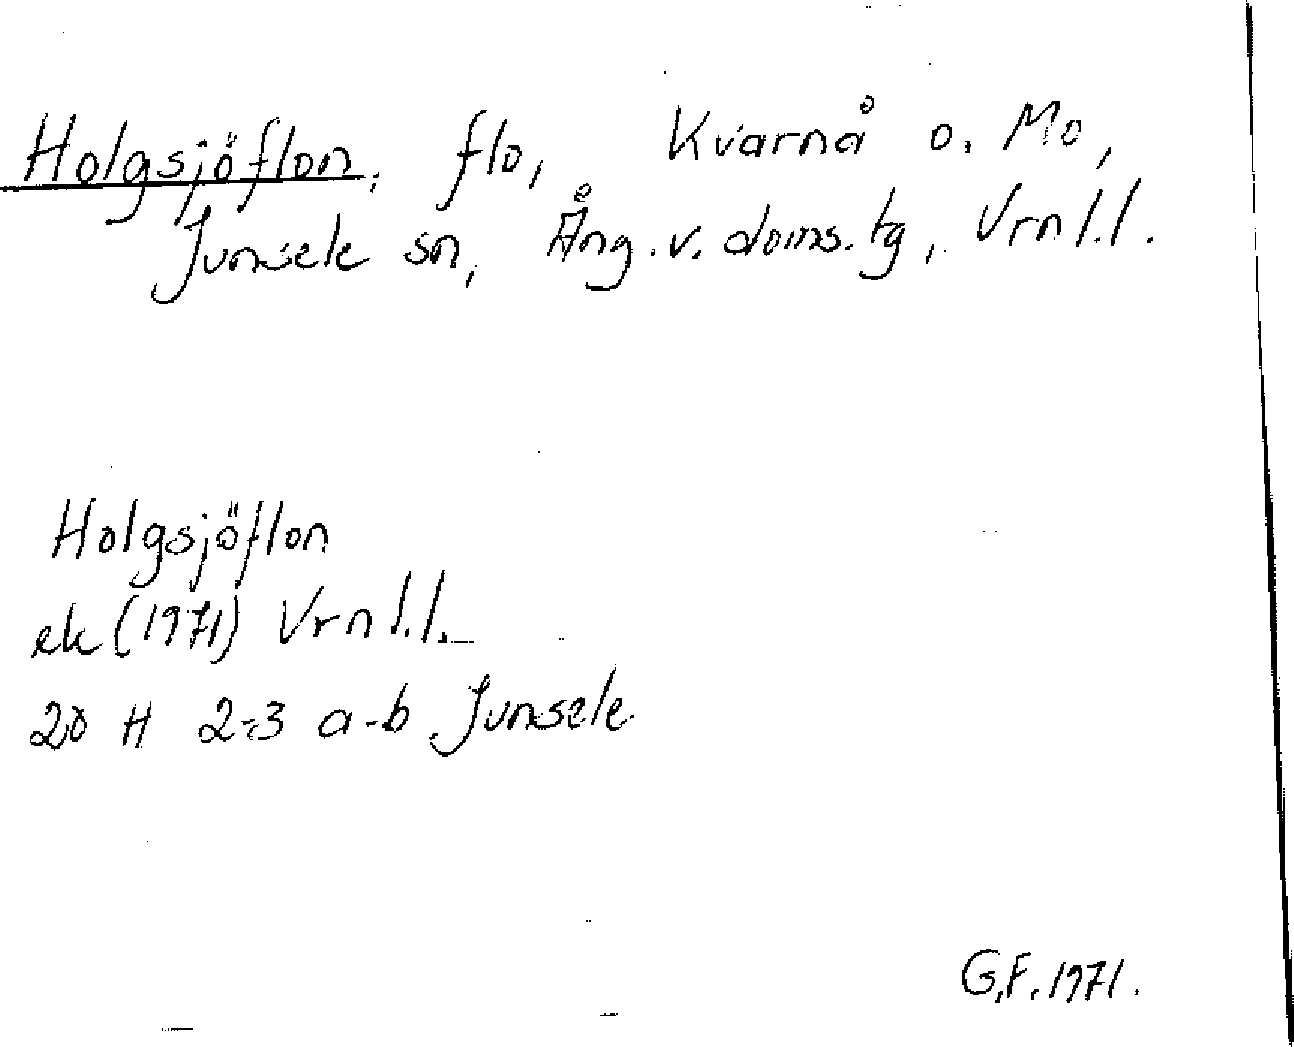 Holgsjöflon, flo, Kvarnå o. Mo,
Junsele sn, Ång. v. doms. tg, Vrnl.l.
Holgsjöflon
ek (1971) Vrnl.l.
20 H 2-3 a-b Junsele
G.F. 1971.